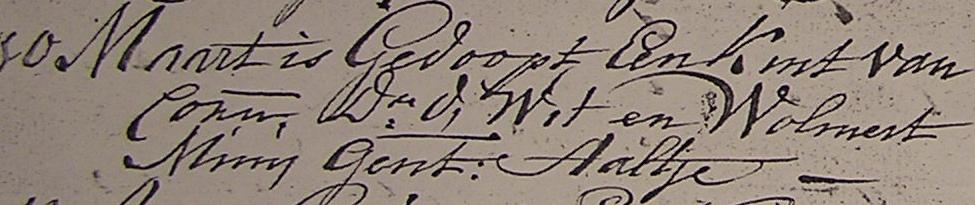 30 Maart is Gedoopt Een Kint van
Corn: Dr: d, Wit en Wolmert
Mimy Gent: Aaltje